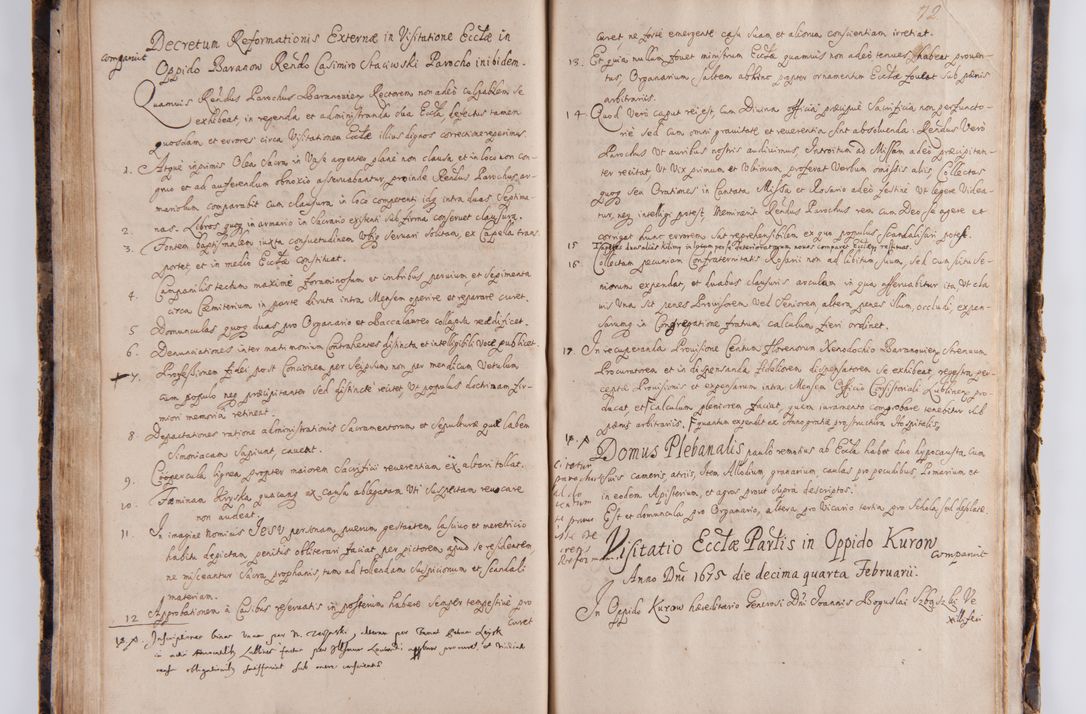 Decretum Reformationis Externæ in Visitatione Ecclæ in
comparuit
Oppido Baranow Rendo Casimiro Staciwski Parocho inibidem.
Quamuis Rendus Parochus Baranouien Rectorem non adeò culpabilem se
exhibeat, in regenda et administranda sibi Eccla, defectus tamen
quosdam et errores circa Visitationem Ecclæ illius dignos correctione reperimus.
1. Atque inprimis Olea Sacra in Vase argenteo plane non clausa, et in loco non con-
gruo et ad auferendum obnoxio asservabantur, proinde Rendus Parochus ar-
mariolum comparabit cum clausura in loco competenti idq intra duas Septima-
2. nas. Libros quoq in armario in Sacrario existenti sub firma conseruet clausura.
3. Fontem baptismalem iuxta consuetudinem Vbiq seruari solitam, ex Capella trans-
portet, et in medio Ecclæ constituat.
4. Campanilis tectum maximè foraminosum et imbribus peruium, et Sepimenta
circa Cæmiterium in parte diruta intra Mensem operire et reparare curet.
5 Domunculas quoq duas pro Organario et Baccalaureo collapsas reædificet.
6. Denunciationes inter matrimonium Contrahentes distincta et intelligibili Voce publicet.
7. Professionem Fidei post Concionem per Seipsum non per mendicum Vetulum
cum populo neq præcipitanter Sed distinctè recitet, Vt populus doctrinam fir-
miori memoria retineat.
8. Depactationes ratione administrationis Sacramentorum et Sepulturæ quæ labem
Simoniacam Sapiunt, caueat.
9. Coopercula lignea, propter maiorem Sacrificii reuerentiam, ex altari tollat.
10. Fæminam Hryska, quacunq ex causa ablegatam Vti Suspectam reuocare
non audeat.
11. In imagine Nominis JESV personam, puerum gestantem, lasciuo et meretricio
habitu depictam, penitus obliterari faciat per pictorem, apud se residentem,
ne misceantur Sacra prophanis, tum ad tollendam Suspicionum et Scandali
materiam.
12 Approbationem à Casibus reseruatis in posterum habere Semper tempestiuè pro
curet
12. p. Inscriptiones binas Vnam per N. alteram per
in actis factas per
sub onere conscientiæ
72
curet, ne fortè emergente casu suam et aliorum conscientiam irretiat.
13. Et quia nullum fouet ministrum Ecclæ quamuis non adeò tenues habeat prouen-
tus, Organarium Saltem abhinc propter ornamentum Ecclæ foueat sub pænis
arbitrariis.
14. Quod Verò caput rei est, Cum Diuina officia præcipuè Sacrificia non perfuncto-
riè Sed Cum omni grauitate et reuerentia Sint absoluenda: Rendus Verò
Parochus Vt auribus nostris audiuimus Introitum ad Missam adeò præcipitan-
ter recitat, Vt Vix primum et Vltimum proferat Verbum omissis aliis, Collectas
quoq seu Orationes in Cantata Missa et Rosario adeò festinè Vt legere Videa-
tur, neq intelligi potest, Meminerit Rendus Parochus rem cum Deo se agere et
corriget hunc errorem sat reprehensibilem ex quo populus scandalizari potest.
15
16. Collectam pecuniam Confraternitatis Rosarii non ad libitum suum, Sed cum scitu Se-
niorum expendat, et duabus clausuris arculam in qua asseruabitur ita Vt cla-
uis Vna sit penes Prouisorem Vel Seniorem, altera penes illum, occludi, expen-
sarumq in Congregatione fratrum calculum fieri ordinet.
17. In recuperanda Prouisione Centum Florenorum Xenodochio Baranouien Strenuum
Procuratorem et in dispensanda fideliorem dispensatorem Se exhibeat, regestra per-
ceptæ Prouisionis et expensarum intra Mensem Officio Consistoriali Lublinen pro-
ducat, et Calculum pleniorem faciat, quem iuramento comprobare tenebitur sub
pænis arbitrariis.
18. p. Domus Plebanalis paulo remotius ab Eccla habet duo hypocausta, Cum
suis cameris, atriis, Item Allodium granarium caulas pro pecudibus, Pomarium et
in eodem Apisterium, et agros prout supra descriptos.
Est et domuncula pro Organario, altera pro Vicario tertia pro Schola sed desolatæ.
Citatur
Reform
Visitatio Ecclæ Partis in Oppido Kurow
comparuit
Anno Dni 1675 die decima quarta Februarii.
In Oppido Kurow hæreditario Generosi Dni Joannis Boguslai Zbąski Ve
xilliferi